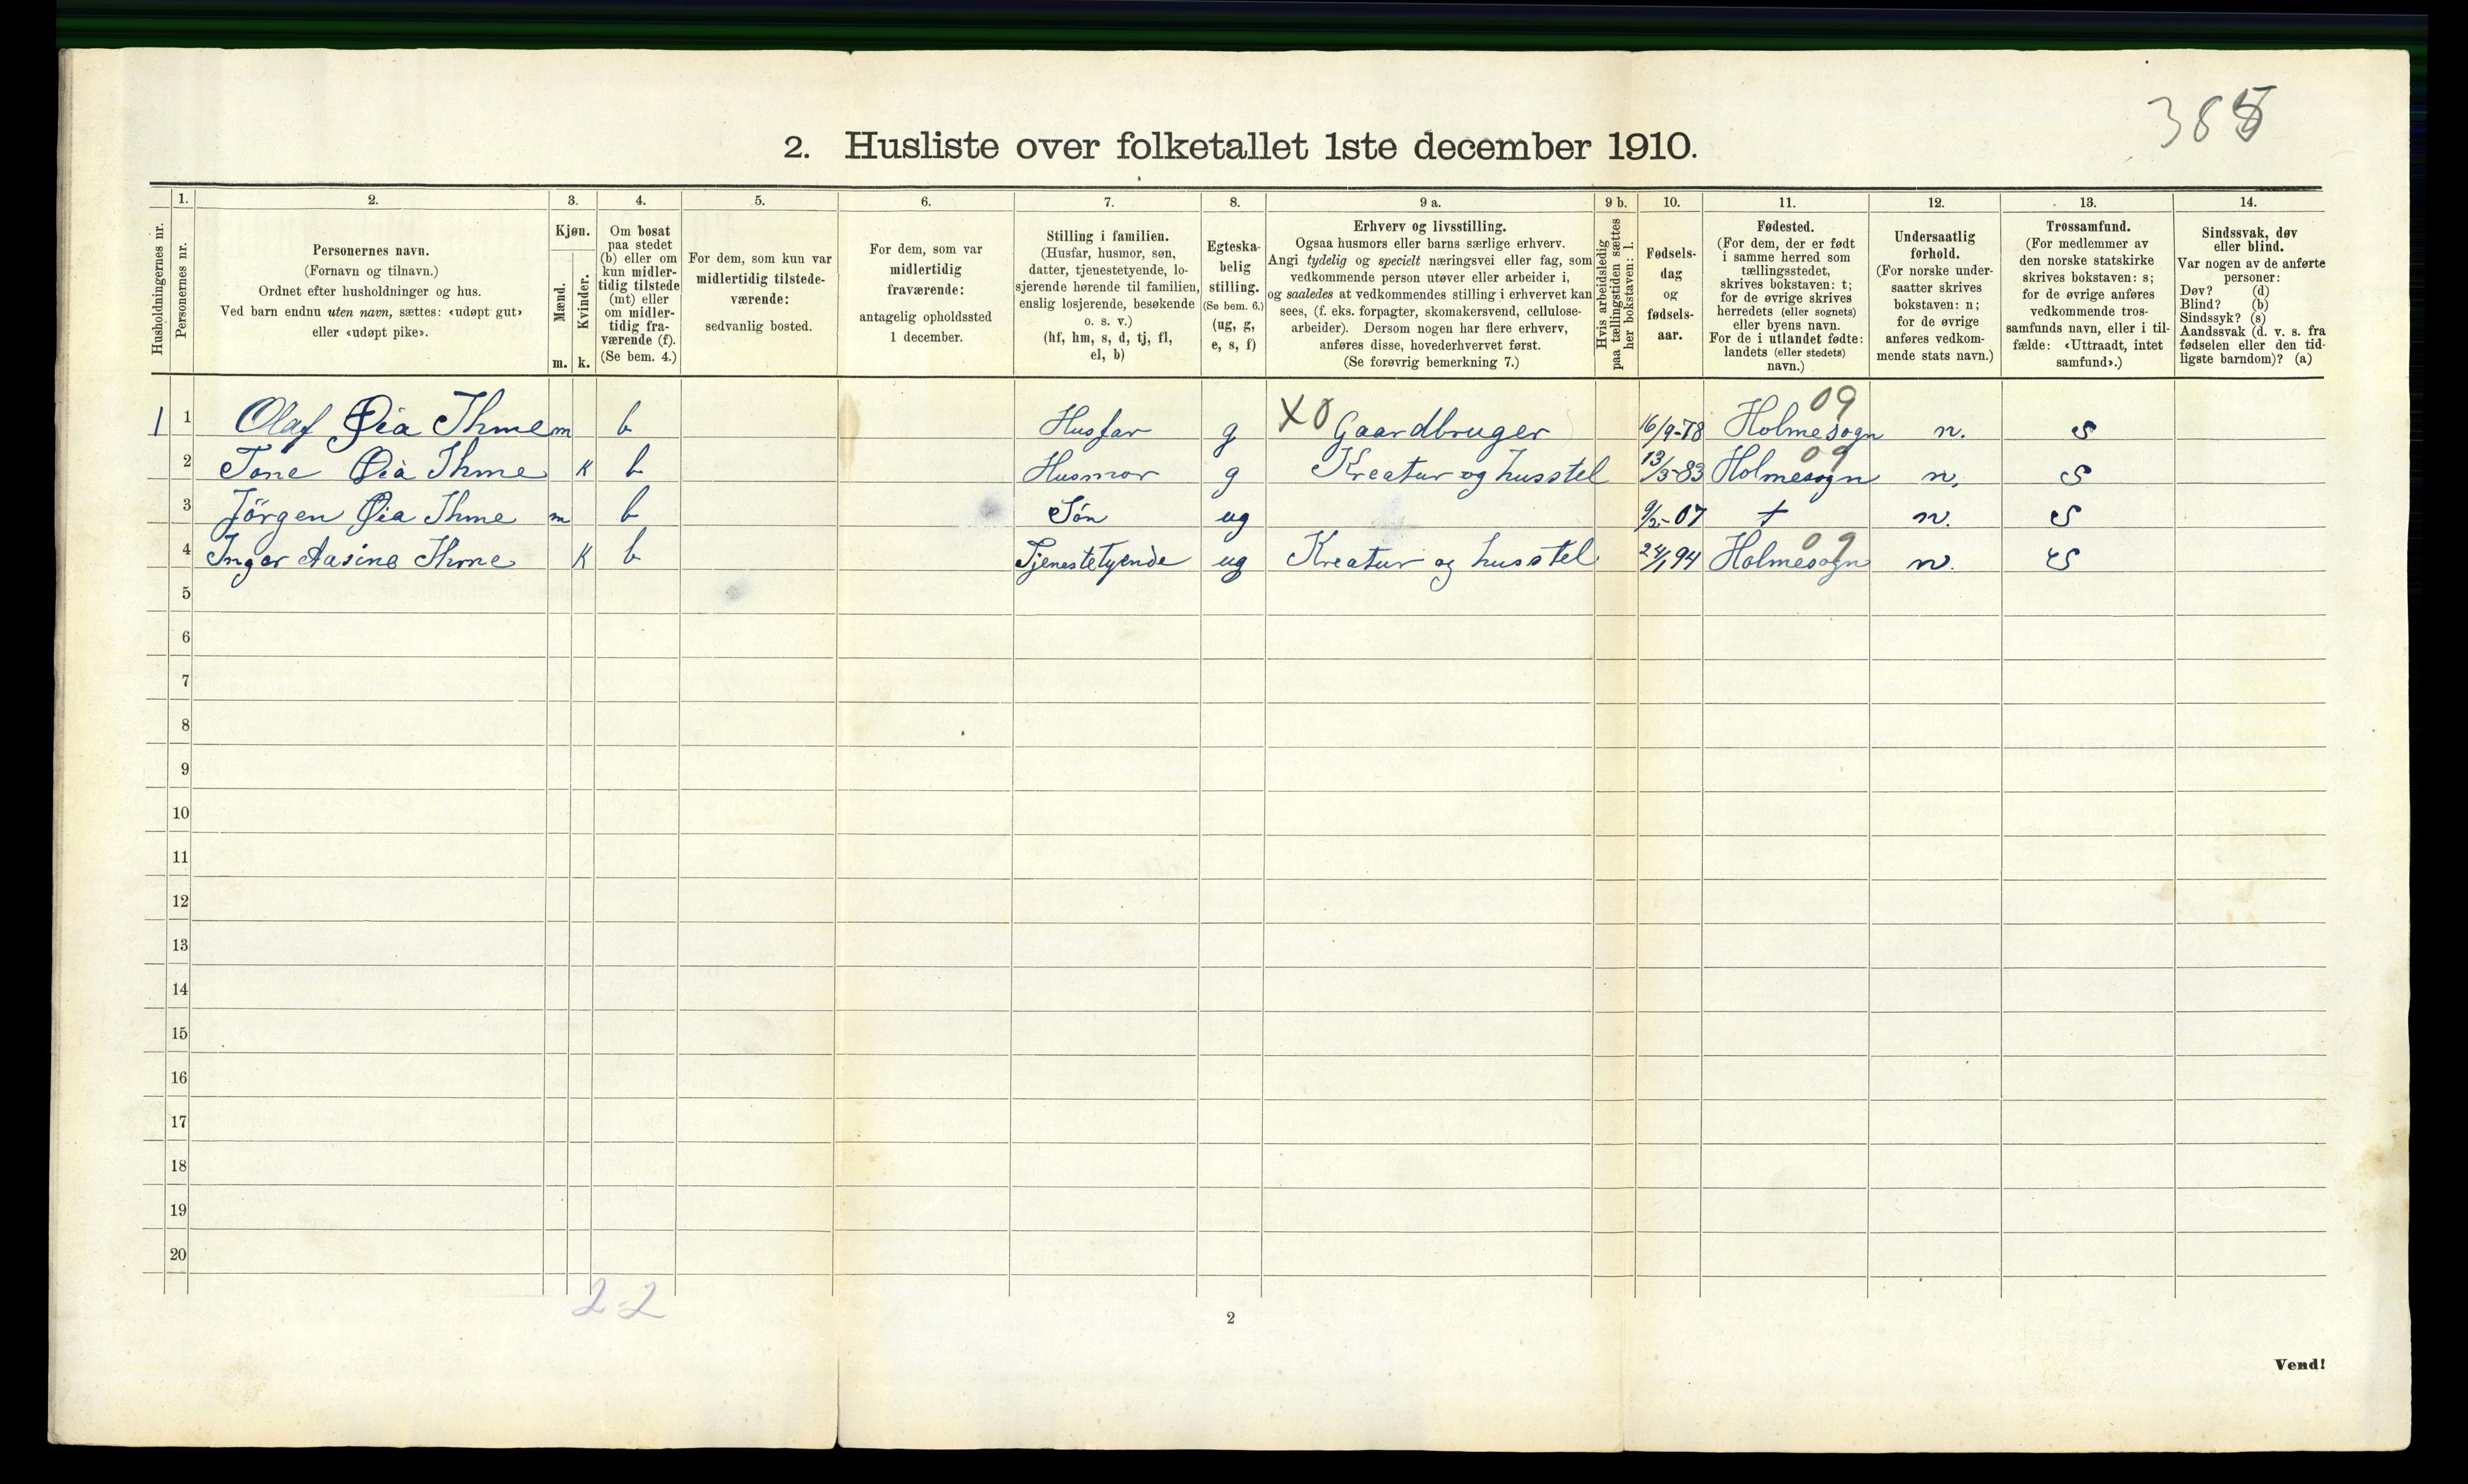 385
2. Husliste over folketallet 1ste december 1910.
Husholdningernes nr.
1.
Personernes nr.
2.
Personernes navn.
(Fornavn og tilnavn.)
Ordnet efter husholdninger og hus.
Ved barn endnu uten navn, sættes: «udøpt gut»
eller «udøpt pike».
3.
Kjøn.
Mænd.
Kvinder.
m. k.
4.
Om bosat
paa stedet
(b) eller om
kun midler-
tidig tilstede
(mt) eller
om midler-
tidig fra-
værende (f).
(Se bem. 4.)
5.
For dem, som kun var
midlertidig tilstede-
værende:
sedvanlig bosted.
6.
For dem, som var
midlertidig
fraværende:
antagelig opholdssted
1 december.
7.
Stilling i familien.
(Husfar, husmor, søn,
datter, tjenestetyende, lo-
sjerende hørende til familien,
enslig losjerende, besøkende
o. s. v.)
(hf, hm, s, d, tj, fl,
el, b)
8.
Egteska-
belig
stilling.
(Se bem. 6.)
(ug, g,
e, s, f)
9 a.
Erhverv og livsstilling.
Ogsaa husmors eller barns særlige erhverv.
Angi tydelig og specielt næringsvei eller fag, som
vedkommende person utøver eller arbeider i,
og saaledes at vedkommendes stilling i erhvervet kan
sees, (f. eks. forpagter, skomakersvend, cellulose-
arbeider). Dersom nogen har flere erhverv,
anføres disse, hovederhvervet først.
(Se forøvrig bemerkning 7.)
9 b.
Hvis arbeidsledig
paa tællingstiden sættes
her bokstaven: l.
10.
Fødsels-
dag
og
fødsels-
aar.
11.
Fødested.
(For dem, der er født
i samme herred som
tællingsstedet,
skrives bokstaven: t;
for de øvrige skrives
herredets (eller sognets)
eller byens navn.
For de i utlandet fødte:
landets (eller stedets)
navn.)
12.
Undersaatlig
forhold.
(For norske under-
saatter skrives
bokstaven: n;
for de øvrige
anføres vedkom-
mende stats navn.)
13.
Trossamfund.
(For medlemmer av
den norske statskirke
skrives bokstaven: s;
for de øvrige anføres
vedkommende tros-
samfunds navn, eller i til-
fælde: «Uttraadt, intet
samfund».)
14.
Sindssvak, døv
eller blind.
Var nogen av de anførte
personer:
Døv? (d)
Blind? (b)
Sindssyk? (s)
Aandssvak (d. v. s. fra
fødselen eller den tid-
ligste barndom)? (a)
1 1 Olaf Øia Ihme m b Husfar g X0 Gaardbruger 16/9-78 Holmesogn 09 n. S
2 Tone Øia Ihme K b Husmor g Kreatur og husstel 13/3-83 Holmesogn 09 n. S
3 Jörgen Øia Ihme m b Sön ug 9/2-07 t n. S
4 Inger Aasine Ihme K b Tjenestetyende ug Kreatur og husstel 24/1 94 Holmesogn 09 n. S
5
6
7
8
9
10
11
12
13
14
15
16
17
18
19
20
2-2
2
Vend!